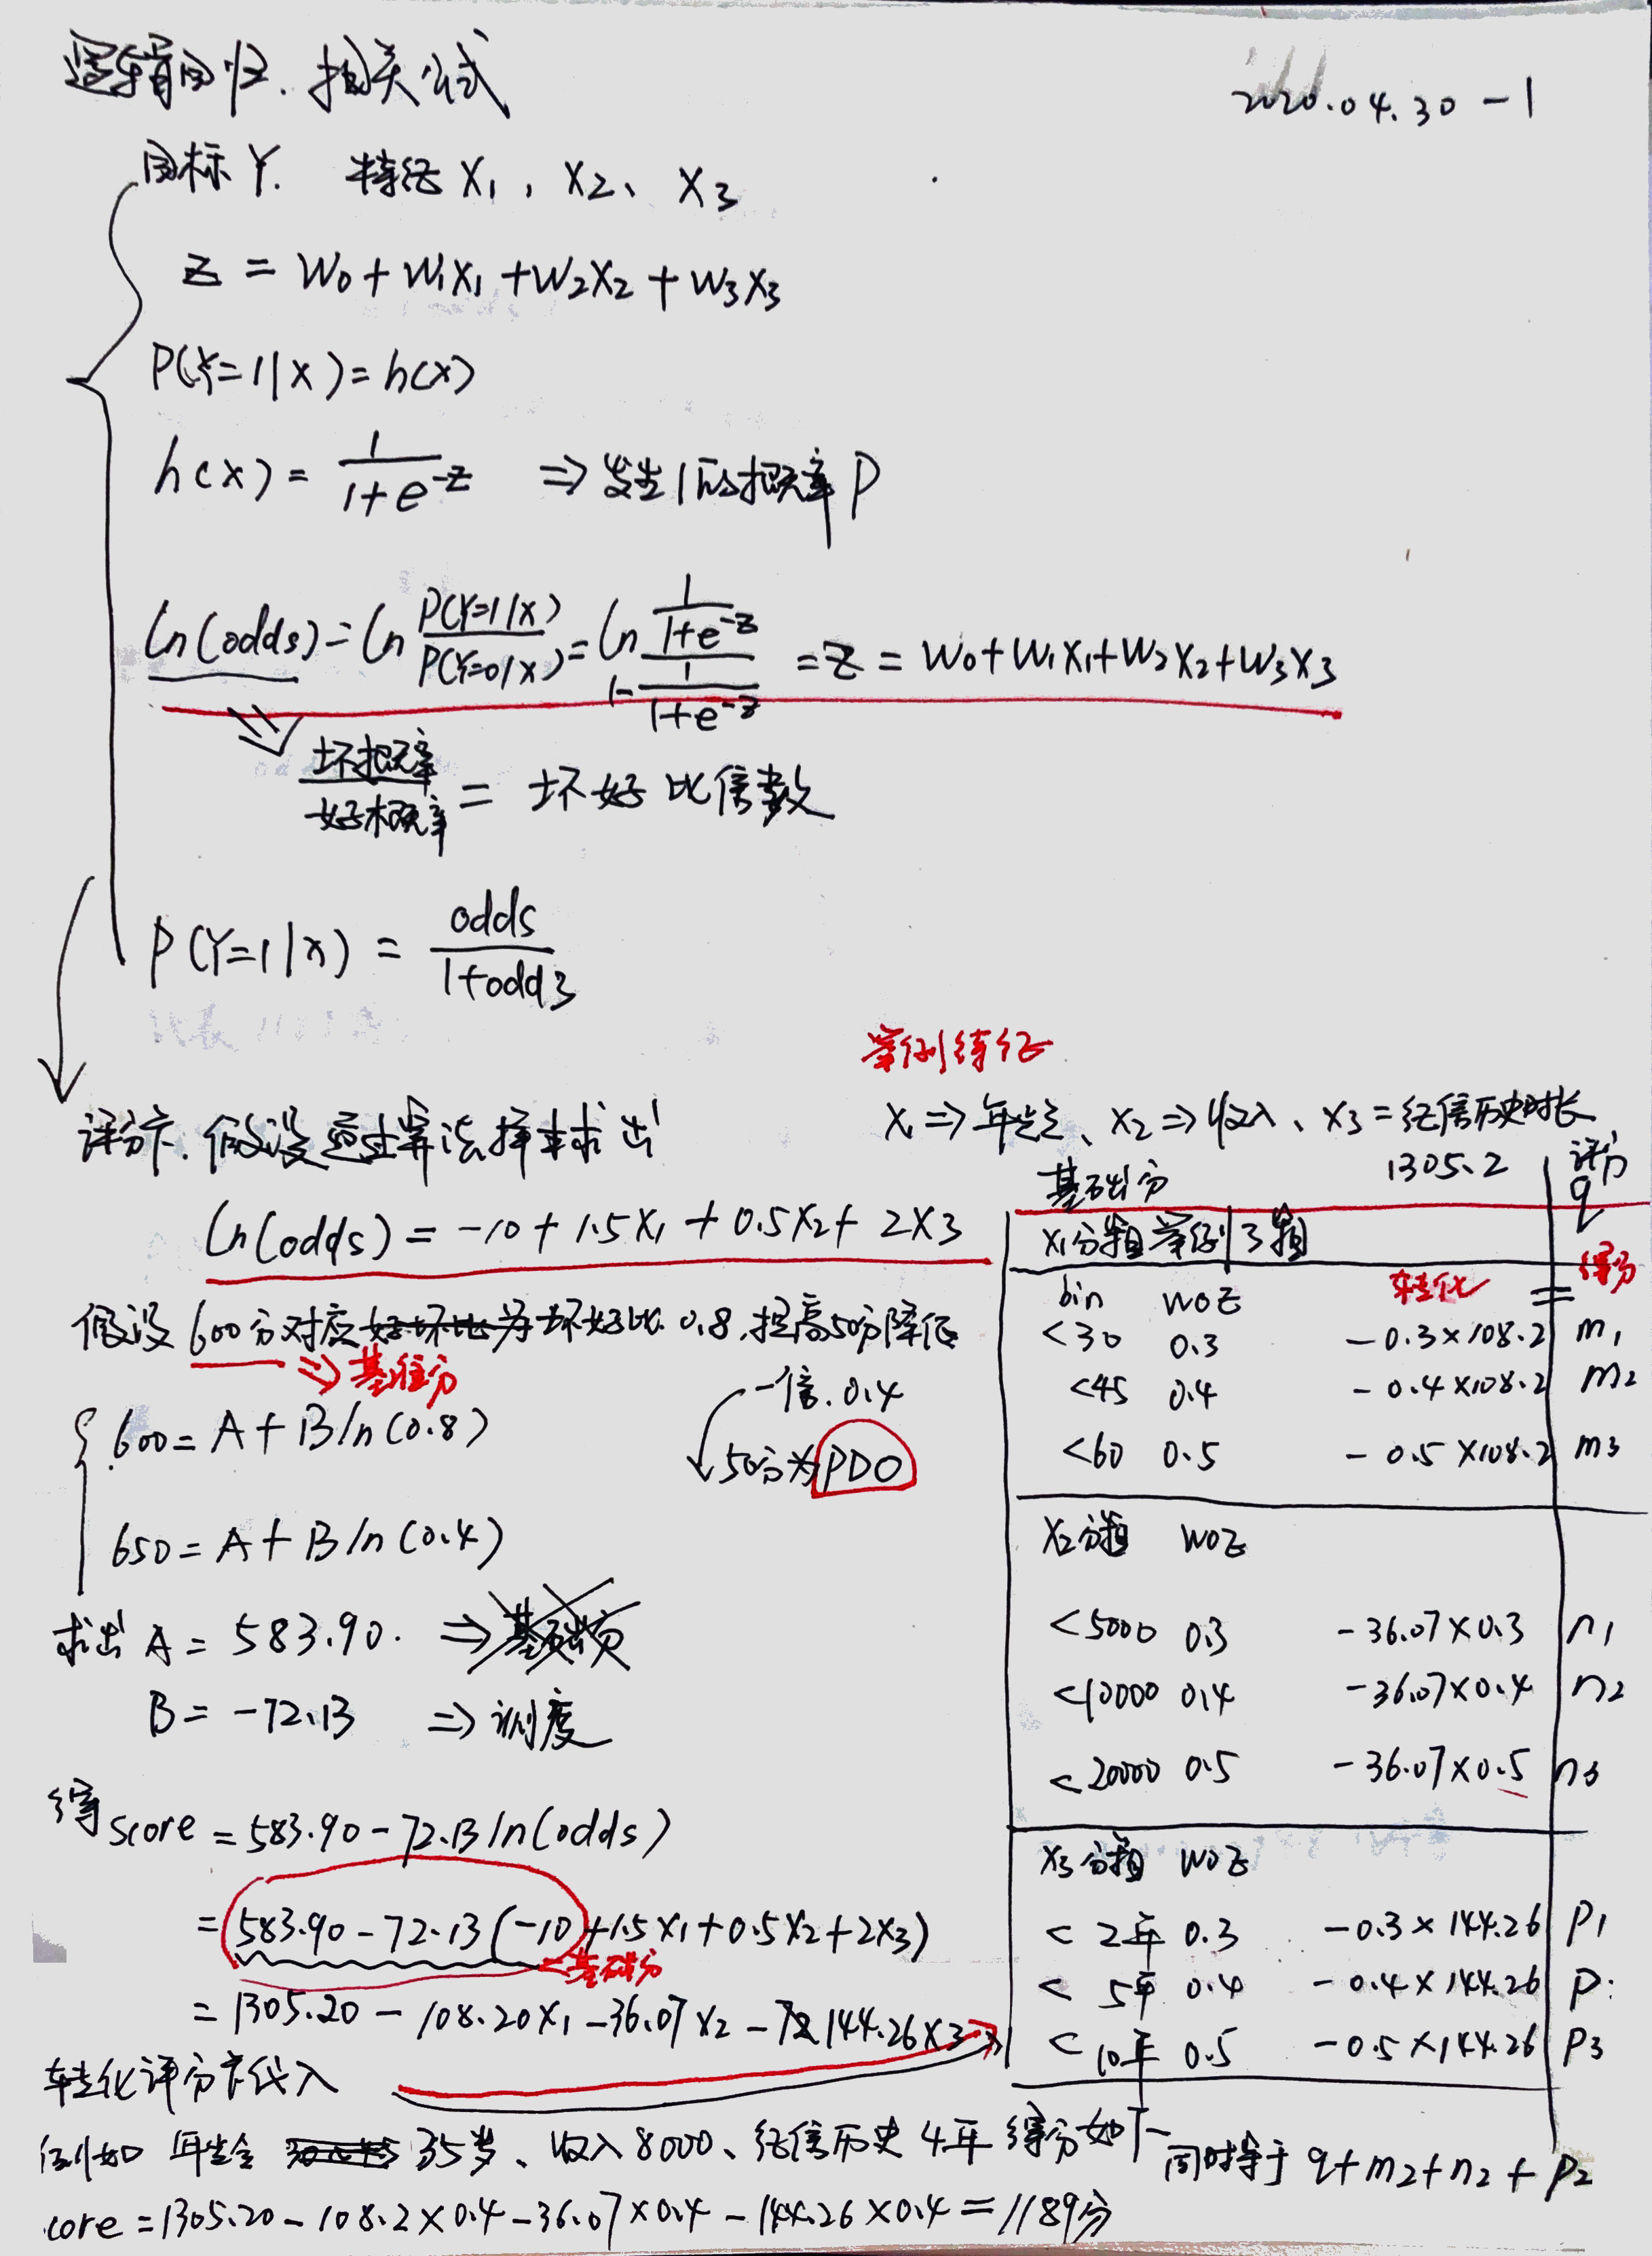 逻辑回归.相关公式
2020.04.30 -1
目标Y. 特征 X1, X2、X3
Z = W0 + W1X1 + W2X2 + W3X3
P(Y=1|X) = h(X)
h(X) = 1/(1+e^-z) ⇒ 发生1的概率P
ln(odds) = ln P(Y=1|X)/P(Y=0|X) = ln (1/(1+e^-z))/(1-1/(1+e^-z)) = Z = W0+W1X1+W2X2+W3X3
坏概率/好概率 = 坏好比倍数
P(Y=1|X) = odds/(1+odds)
评分卡.假设通过算法择求出
ln(odds) = -10 + 1.5X1 + 0.5X2 + 2X3
假设600分对应好坏比为坏好比0.8,提高50分降低
⇒ 基准分
一倍.0.4
50分为PDO
600 = A + B ln(0.8)
650 = A + B ln(0.4)
求出 A = 583.90. ⇒ 基础分
B = -72.13 ⇒ 刻度
得 score = 583.90 - 72.13 ln(odds)
= 583.90 - 72.13(-10 + 1.5X1 + 0.5X2 + 2X3)
基础分
= 1305.20 - 108.20X1 - 36.07X2 - 144.26X3
举例特征
X1 ⇒ 年龄、X2 ⇒ 收入、X3 = 征信历史时长
基础分 1305.2 评分 q
X1分组举例3组
bin WOE 转化 = 得分
<30 0.3 -0.3×108.2 m1
<45 0.4 -0.4×108.2 m2
<60 0.5 -0.5×108.2 m3
X2分组 WOE
<5000 0.3 -36.07×0.3 n1
<10000 0.4 -36.07×0.4 n2
<20000 0.5 -36.07×0.5 n3
X3分组 WOE
< 2年 0.3 -0.3×144.26 P1
< 5年 0.4 -0.4×144.26 P
< 10年 0.5 -0.5×144.26 P3
转化评分卡代入
例如 年龄 35岁、收入8000、征信历史4年 得分如下
同时等于 q+m2+n2+P2
core = 1305.20 - 108.2×0.4 - 36.07×0.4 - 144.26×0.4 = 1189分